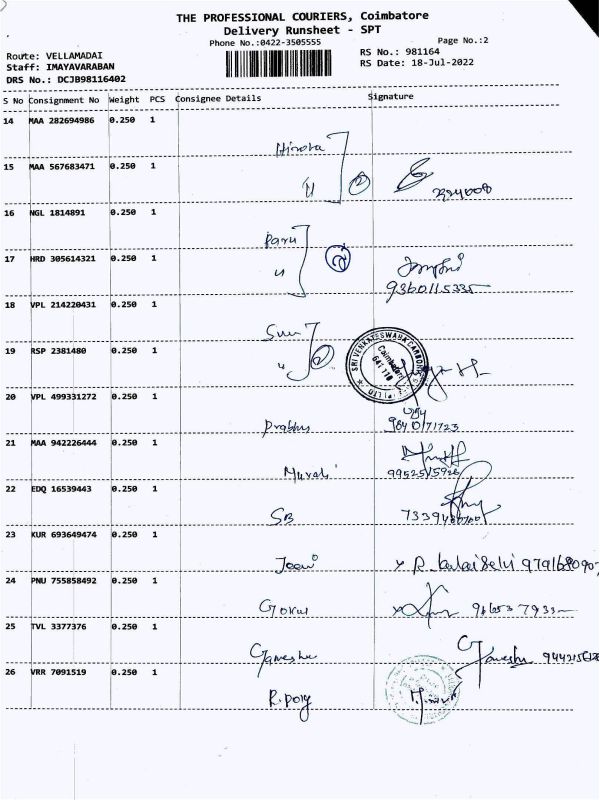 THE PROFESSIONAL COURIERS, Coimbatore
Delivery Runsheet - SPT
Phone No.:0422-3505555
Page No.:2
Route: VELLAMADAI
RS No.: 981164
Staff: IMAYAVARABAN
RS Date: 18-Jul-2022
DRS No.: DCJB98116402
S No Consignment No Weight PCS Consignee Details Signature
14 MAA 282694986 0.250 1
15 MAA 567683471 0.250 1
16 NGL 1814891 0.250 1
Paru
17 HRD 305614321 0.250 1
9360115335
18 VPL 214220431 0.250 1
SRI VENKATESWARA CARBON
Coimbatore
641 110
19 RSP 2381480 0.250 1
20 VPL 499331272 0.250 1
Prabhu 9840171723
21 MAA 942226444 0.250 1
Murali 9952515926
22 EDQ 16539443 0.250 1
SB
23 KUR 693649474 0.250 1
x R. Kalai Selvi
24 PNU 755858492 0.250 1
Gokul
25 TVL 3377376 0.250 1
Ganesha Ganesha
26 VRR 7091519 0.250 1